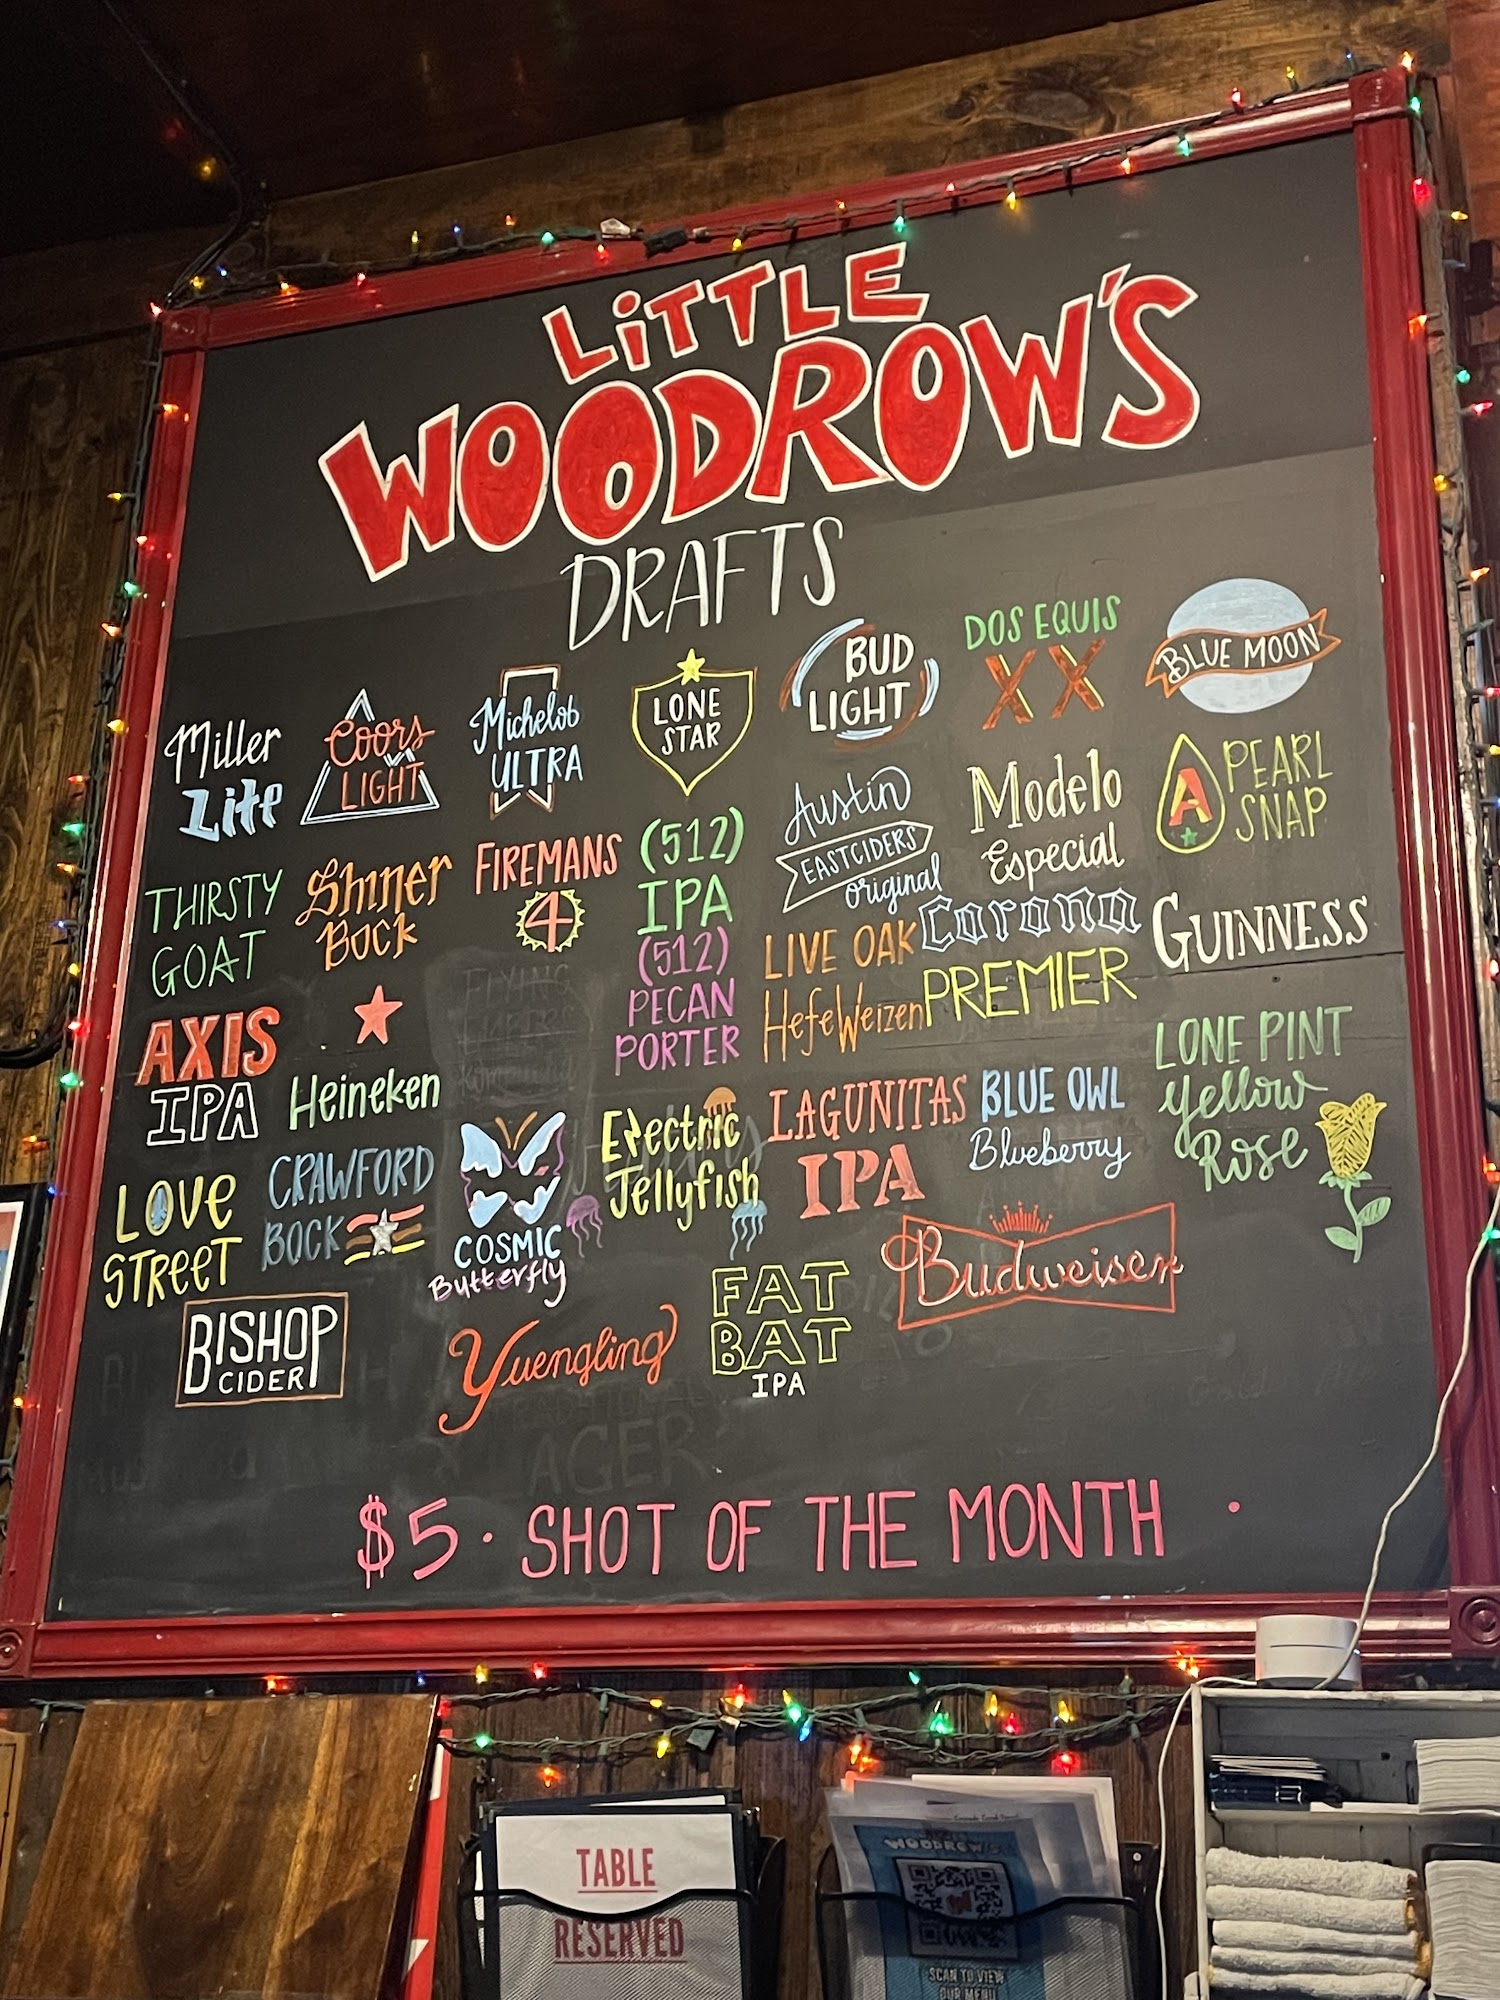 LiTTLE
WOODROW'S
DRAFTS
Miller
Lite
Coors
LIGHT
Michelob
ULTRA
LONE
STAR
BUD
LIGHT
DOS EQUIS
XX
BLUE MOON
THIRSTY
GOAT
Shiner
BOCK
FIREMANS
4
(512)
IPA
Austin
EASTCIDERS
original
Modelo
Especial
A
PEARL
SNAP
AXIS
IPA
Heineken
(512)
PECAN
PORTER
LIVE OAK
HefeWeizen
Corona
PREMIER
GUINNESS
LOVE
STREET
CRAWFORD
BOCK
COSMIC
Butterfly
Electric
Jellyfish
LAGUNITAS
IPA
BLUE OWL
Blueberry
LONE PINT
Yellow
Rose
BISHOP
CIDER
Yuengling
FAT
BAT
IPA
Budweiser
$5 · SHOT OF THE MONTH ·
TABLE
RESERVED
WOODROW'S
SCAN TO VIEW
OUR MENU